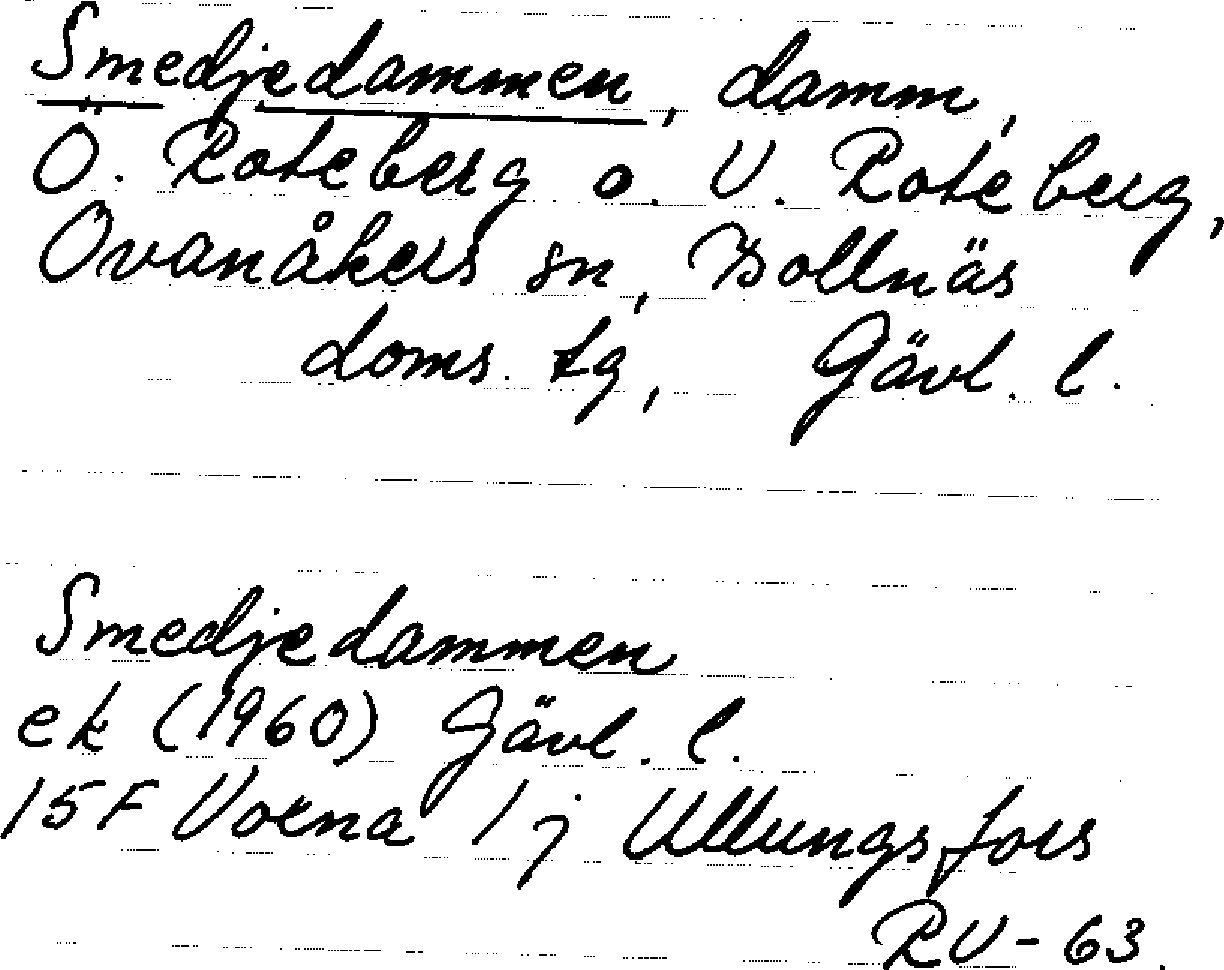 Smedjedammen, damm,
Ö. Roteberg o. V. Roteberg,
Ovanåkers sn, Bollnäs
doms. tg, Gävl. l.
Smedjedammen
ek (1960) Gävl. l.
15F Voxna 1j Ullungsfors
RV-63.